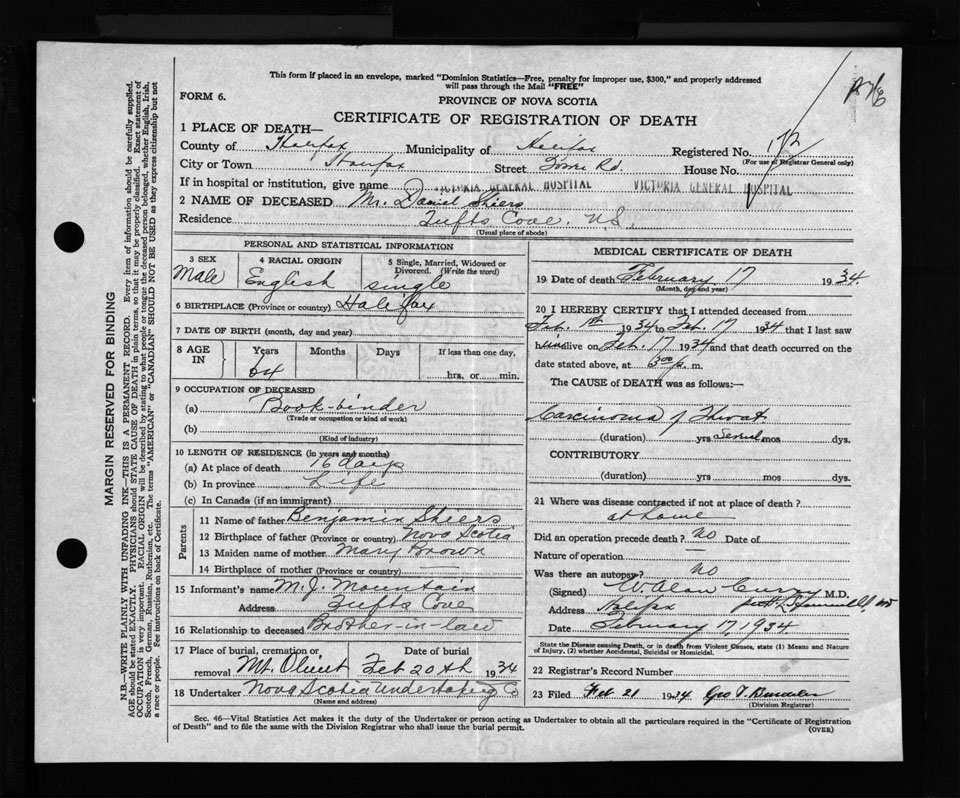 This form if placed in an envelope, marked "Dominion Statistics—Free, penalty for improper use, $300," and properly addressed
will pass through the Mail "FREE"
FORM 6.
PROVINCE OF NOVA SCOTIA
CERTIFICATE OF REGISTRATION OF DEATH
1 PLACE OF DEATH—
County of Halifax Municipality of Halifax Registered No. 172
(For use of Registrar General only)
City or Town Halifax Street Rd. House No.
If in hospital or institution, give name VICTORIA GENERAL HOSPITAL VICTORIA GENERAL HOSPITAL
2 NAME OF DECEASED Mr. Daniel Shiers
Residence Tufts Cove, N.S.
(Usual place of abode)
PERSONAL AND STATISTICAL INFORMATION
3 SEX 4 RACIAL ORIGIN 5 Single, Married, Widowed or
Divorced. (Write the word)
Male English single
6 BIRTHPLACE (Province or country) Halifax
7 DATE OF BIRTH (month, day and year)
8 AGE IN Years Months Days If less than one day,
64 hrs. or min.
9 OCCUPATION OF DECEASED
(a) Book-binder
(Trade or occupation or kind of work)
(b)
(Kind of industry)
10 LENGTH OF RESIDENCE (in years and months)
(a) At place of death 16 days
(b) In province Life
(c) In Canada (if an immigrant)
Parents
11 Name of father Benjamin Shiers
12 Birthplace of father (Province or country) Nova Scotia
13 Maiden name of mother Mary Brown
14 Birthplace of mother (Province or country) —
15 Informant's name M. J. Mountain
Address Tufts Cove
16 Relationship to deceased Brother-in-law
17 Place of burial, cremation or removal Date of burial
Mt. Olivet Feb 20th 1934
18 Undertaker Nova Scotia Undertaking Co
(Name and address)
MEDICAL CERTIFICATE OF DEATH
19 Date of death February 17 1934.
(Month, day and year)
20 I HEREBY CERTIFY that I attended deceased from
Feb. 1st 1934 to Feb. 17 1934 that I last saw
him alive on Feb. 17 1934 and that death occurred on the
date stated above, at 3:00 p. m.
The CAUSE of DEATH was as follows:—
Carcinoma of Throat
(duration) yrs Several mos dys.
CONTRIBUTORY
(duration) yrs mos dys.
21 Where was disease contracted if not at place of death?
at home
Did an operation precede death? No Date of
Nature of operation —
Was there an autopsy? No
(Signed) W. Alan Curry M.D.
Address Halifax
Date February 17, 1934.
State the Disease causing Death, or in death from Violent Causes, state (1) Means and Nature
of Injury, (2) whether Accidental, Suicidal or Homicidal.
22 Registrar's Record Number
23 Filed Feb 21 1934 Geo T.
(Division Registrar)
Sec. 46—Vital Statistics Act makes it the duty of the Undertaker or person acting as Undertaker to obtain all the particulars required in the "Certificate of Registration
of Death" and to file the same with the Division Registrar who shall issue the burial permit.
(OVER)
MARGIN RESERVED FOR BINDING
N.B.—WRITE PLAINLY WITH UNFADING INK—THIS IS A PERMANENT RECORD. Every item of information should be carefully supplied.
AGE should be stated EXACTLY. PHYSICIANS should STATE CAUSE OF DEATH in plain terms, so that it may be properly classified. Exact statement of
OCCUPATION is very important. RACIAL ORIGIN will be described by stating to what people or tongue the deceased person belonged, whether English, Irish,
Scotch, French, German, Russian, Ruthenian, etc. The terms "AMERICAN" or "CANADIAN" SHOULD NOT BE USED as they express citizenship but not
a race or people. Fee instructions on back of Certificate.